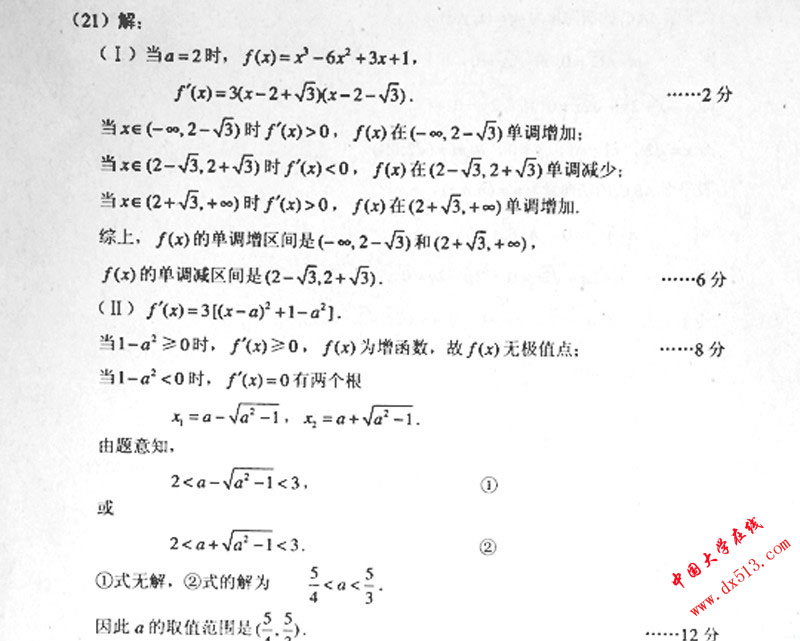 (21) 解:
(Ⅰ) 当a=2时, f(x)=x³-6x²+3x+1,
f′(x)=3(x-2+√3)(x-2-√3). ……2分
当x∈(-∞,2-√3)时f′(x)>0, f(x)在(-∞,2-√3)单调增加;
当x∈(2-√3,2+√3)时f′(x)<0, f(x)在(2-√3,2+√3)单调减少;
当x∈(2+√3,+∞)时f′(x)>0, f(x)在(2+√3,+∞)单调增加.
综上, f(x)的单调增区间是(-∞,2-√3)和(2+√3,+∞),
f(x)的单调减区间是(2-√3,2+√3). ……6分
(Ⅱ) f′(x)=3[(x-a)²+1-a²].
当1-a²≥0时, f′(x)≥0, f(x)为增函数, 故f(x)无极值点; ……8分
当1-a²<0时, f′(x)=0有两个根
x₁=a-√(a²-1), x₂=a+√(a²-1).
由题意知,
2<a-√(a²-1)<3, ①
或
2<a+√(a²-1)<3. ②
①式无解, ②式的解为 5/4<a<5/3.
因此a的取值范围是(5/4,5/3). ……12分
中国大学在线
www.dx513.com